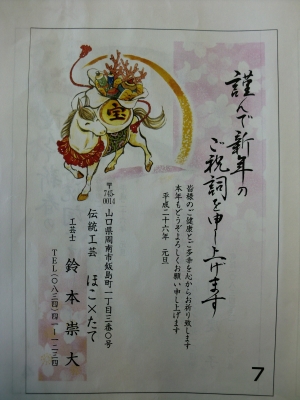 謹んで新年の
ご祝詞を申し上げます
皆様のご健康とご多幸を心からお祈り致します
本年もどうぞよろしくお願い申し上げます
平成二十六年 元旦
〒745-0014
山口県周南市飯島町一丁目三番〇号
伝統工芸 ほこ×たて
工芸士 鈴本崇大
TEL(〇八三四)四一-一二三四
宝
7